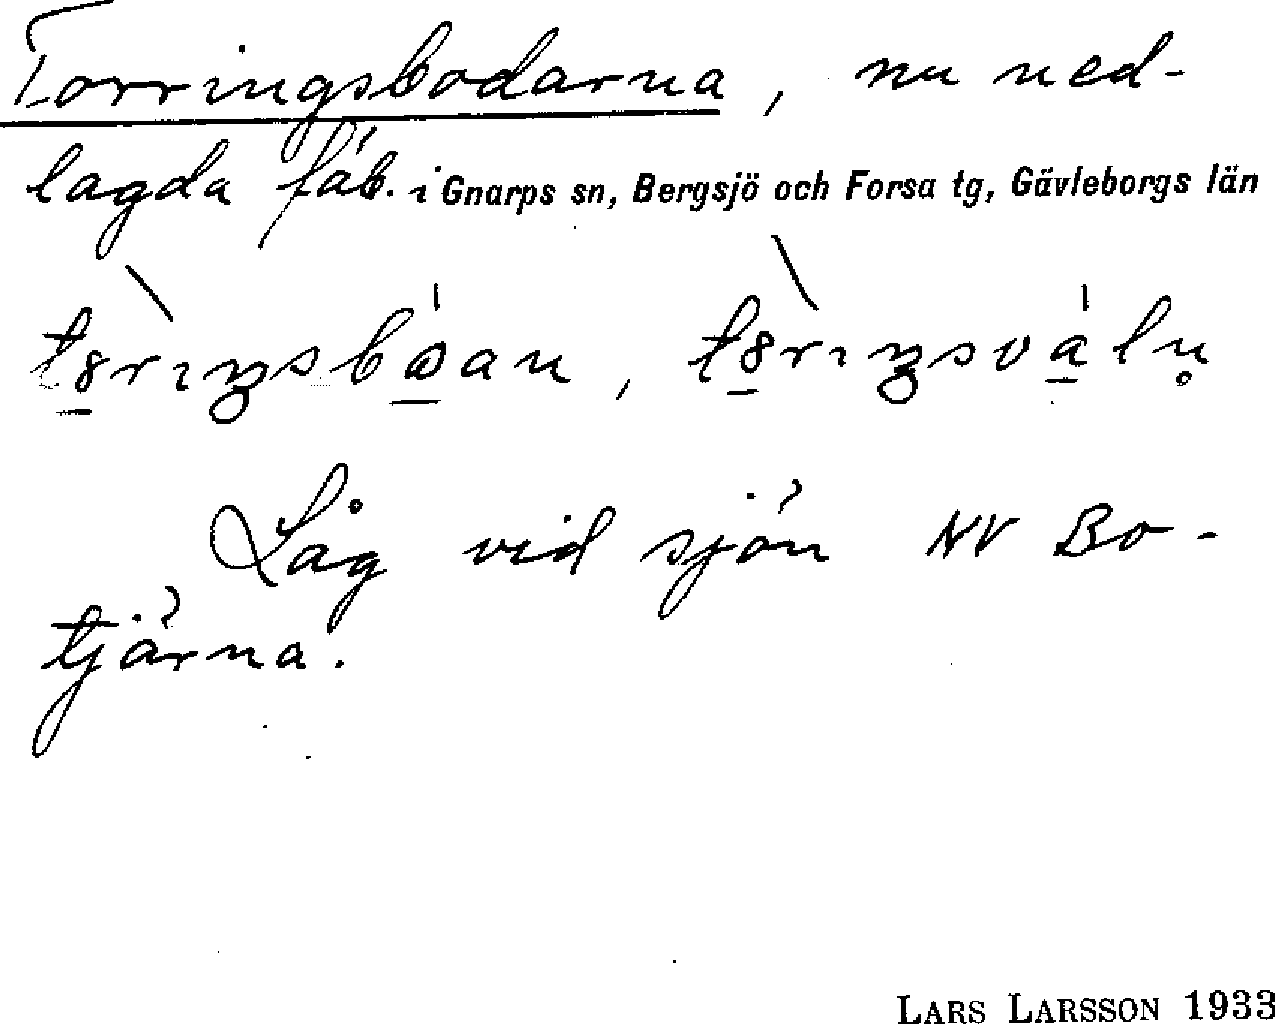 Torringsbodarna, nu ned-
lagda fäb. i Gnarps sn, Bergsjö och Forsa tg, Gävleborgs län
Låg vid sjön NV Bo-
tjärna.
LARS LARSSON 1933